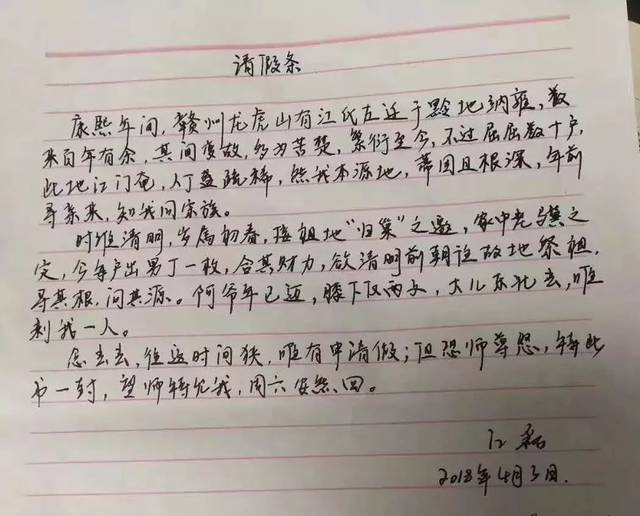 请假条
康熙年间，赣州龙虎山有江氏左迁于黔地纳雍，数
来百年有余，其间变故，多为苦楚，繁衍至今，不过屈屈数十户，
此地江门奄，人丁益疏稀，然我本源地，蒂固且根深，年前
寻亲来，知我同宗族。
时维清明，岁属初春，接祖地“归巢”之邀，家中老
定，今每户出男丁一枚，合其财力，欲清明前朝往故地祭祖，
寻其根，问其源。阿爷年已迈，膝下仅两子，大儿东北去，唯
剩我一人。
念去去，往返时间狭，唯有申请假；但恐师尊怒，特此
书一封，望师特允我，周六安然回。
江磊
2018年4月3日